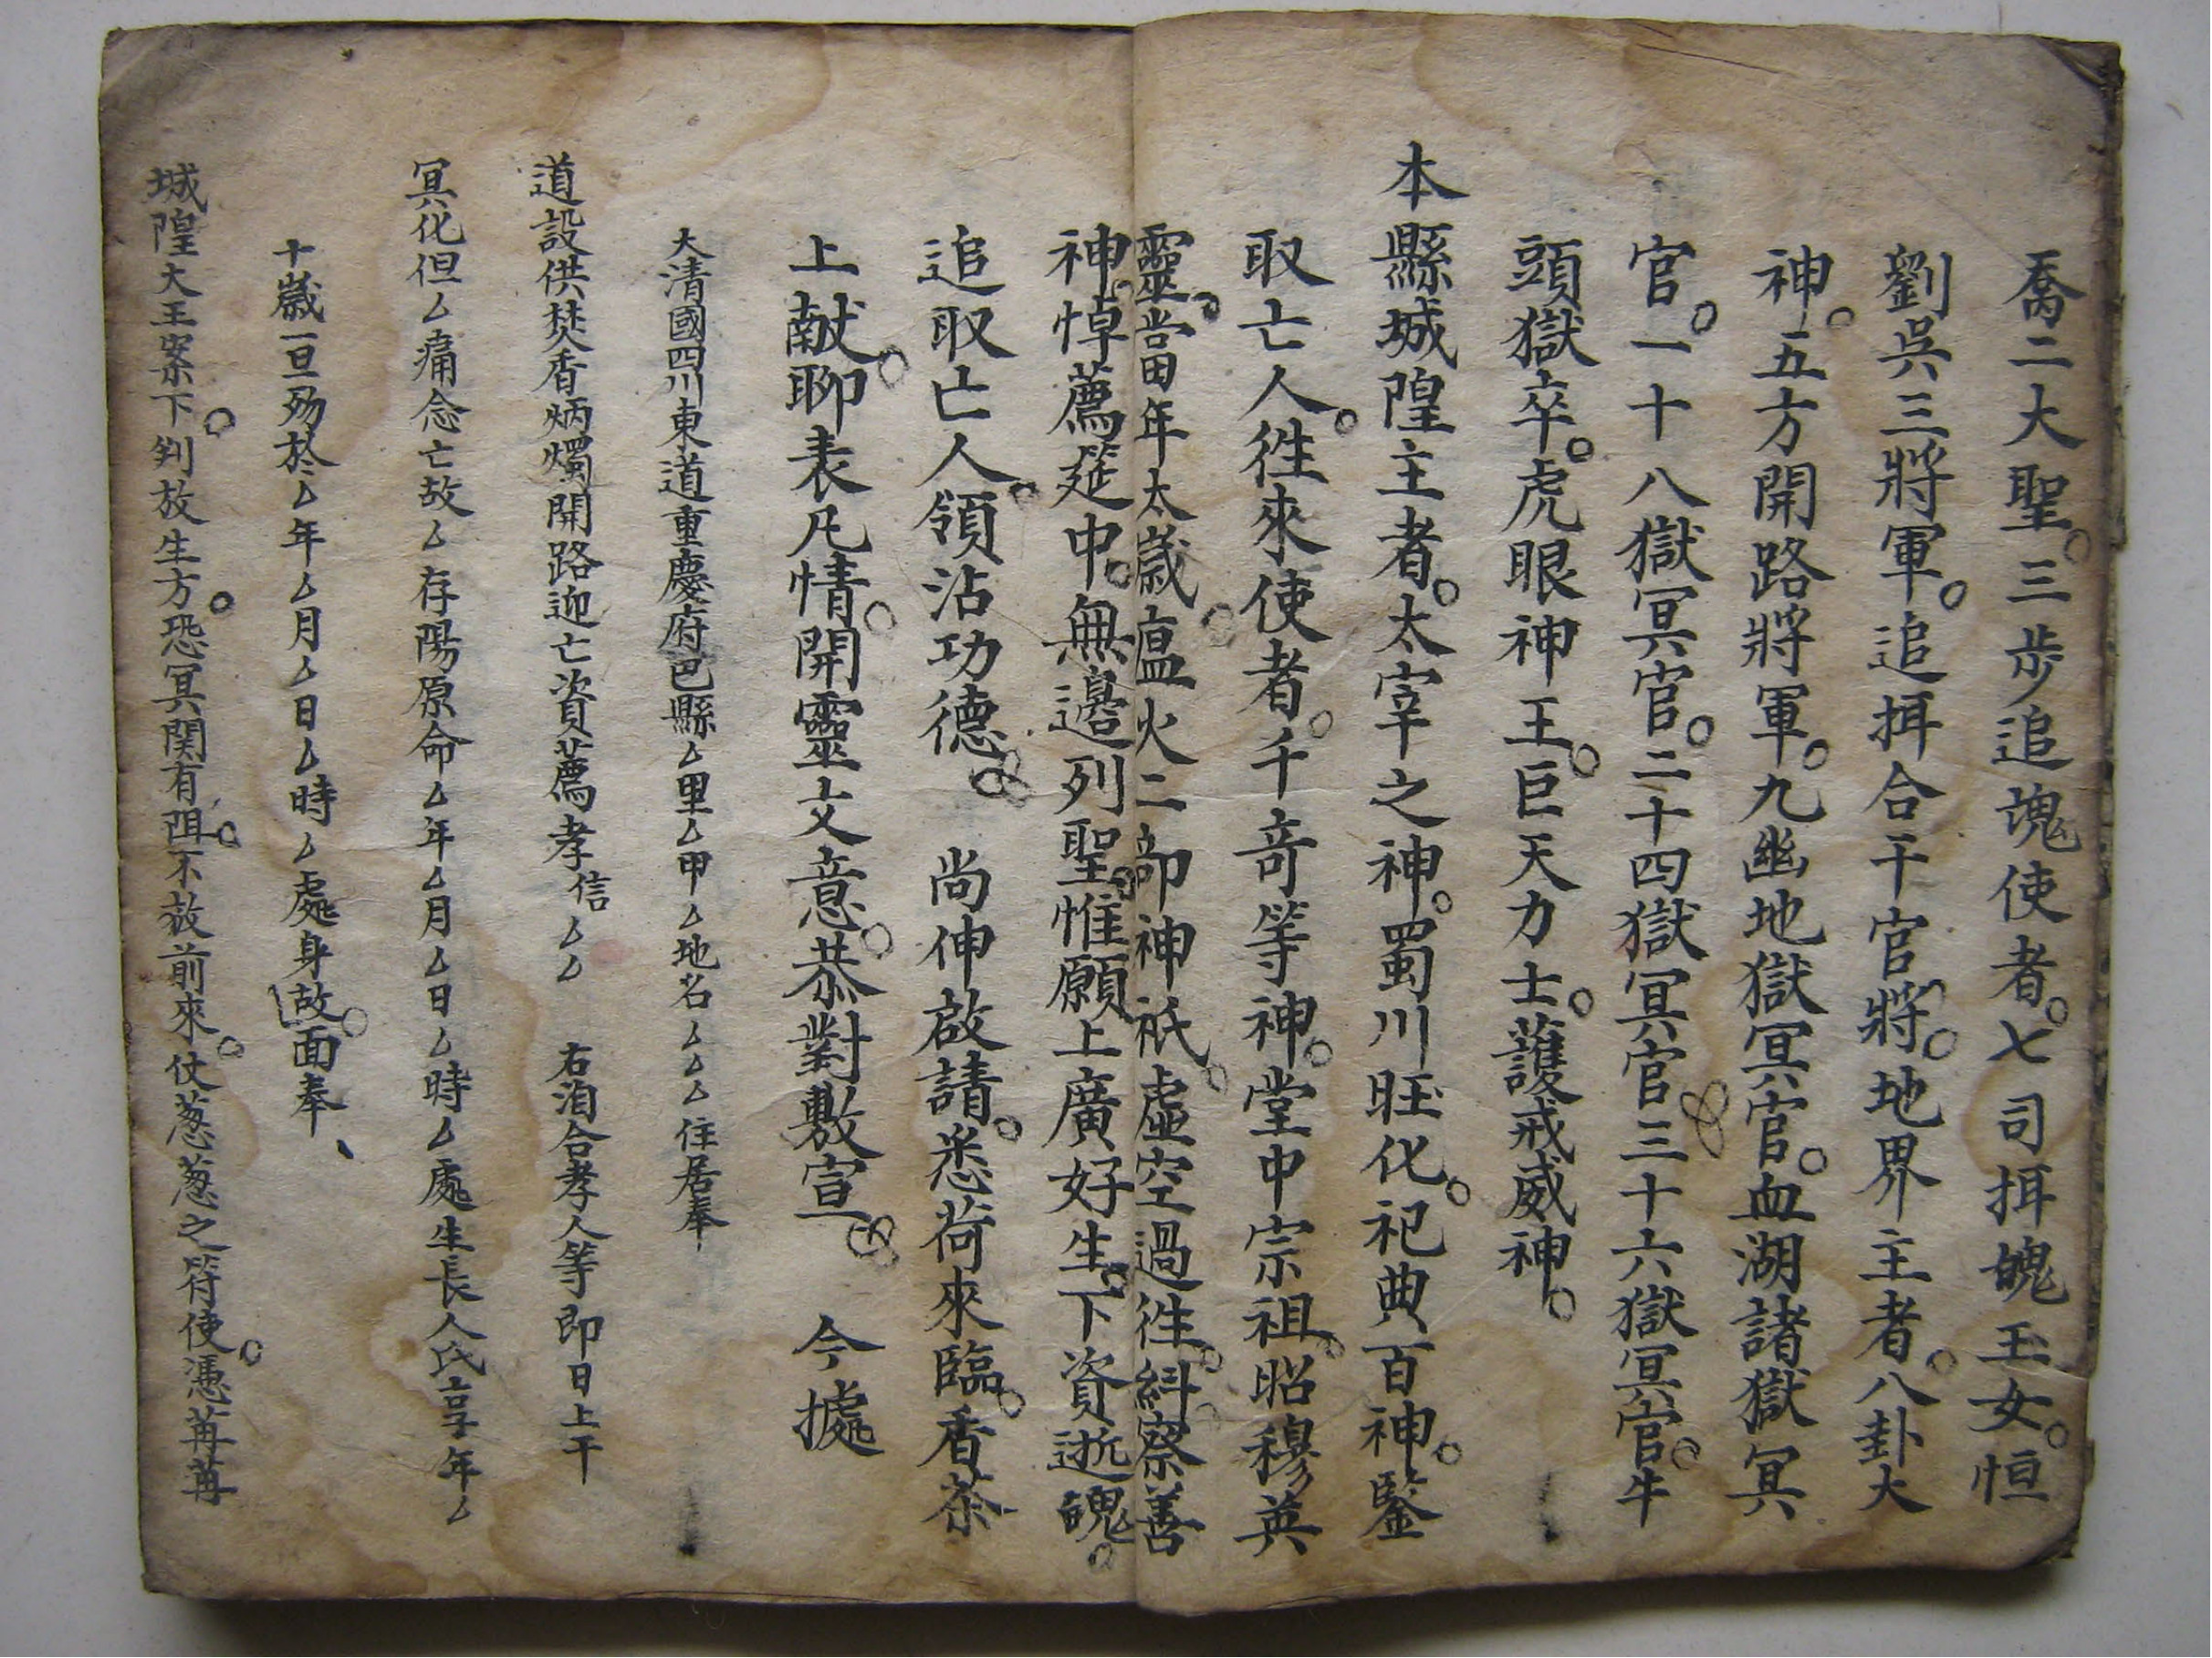 喬二大聖。三步追魂使者。七司拘魄玉女。恒
劉吳三將軍。追拘合干官將。地界主者。八卦大
神。五方開路將軍。九幽地獄冥官。血湖諸獄冥
官。一十八獄冥官。二十四獄冥官。三十六獄冥官。牛
頭獄卒。虎眼神王。巨天力士。護戒威神。
本縣城隍主者。太宰之神。蜀川旺化。祀典百神。鑒
取亡人。徃來使者。千竒等神。堂中宗祖。昭穆英
靈。當年太歲。瘟火二部神祇。虛空過徃。糾察善
神。悼薦筵中。無邊列聖。惟願上廣好生。下資逝魄。
追取亡人。領沾功德。 尚伸啟請。悉荷來臨。香茶
上献。聊表凡情。開靈文意。恭對敷宣。 今據
大清國四川東道重慶府巴縣厶里厶甲厶地名厶厶厶住居奉
道設供焚香炳燭開路迎亡資薦孝信厶厶 右洎合孝人等即日上干
冥化但厶痛念亡故厶存陽原命厶年厶月厶日厶時厶處生長人氏享年厶
十歲一旦殁於厶年厶月厶日厶時厶處身故。面奉、
城隍大王案下。判放生方。恐冥関有阻。不放前來。仗葱葱之符使。憑苒苒